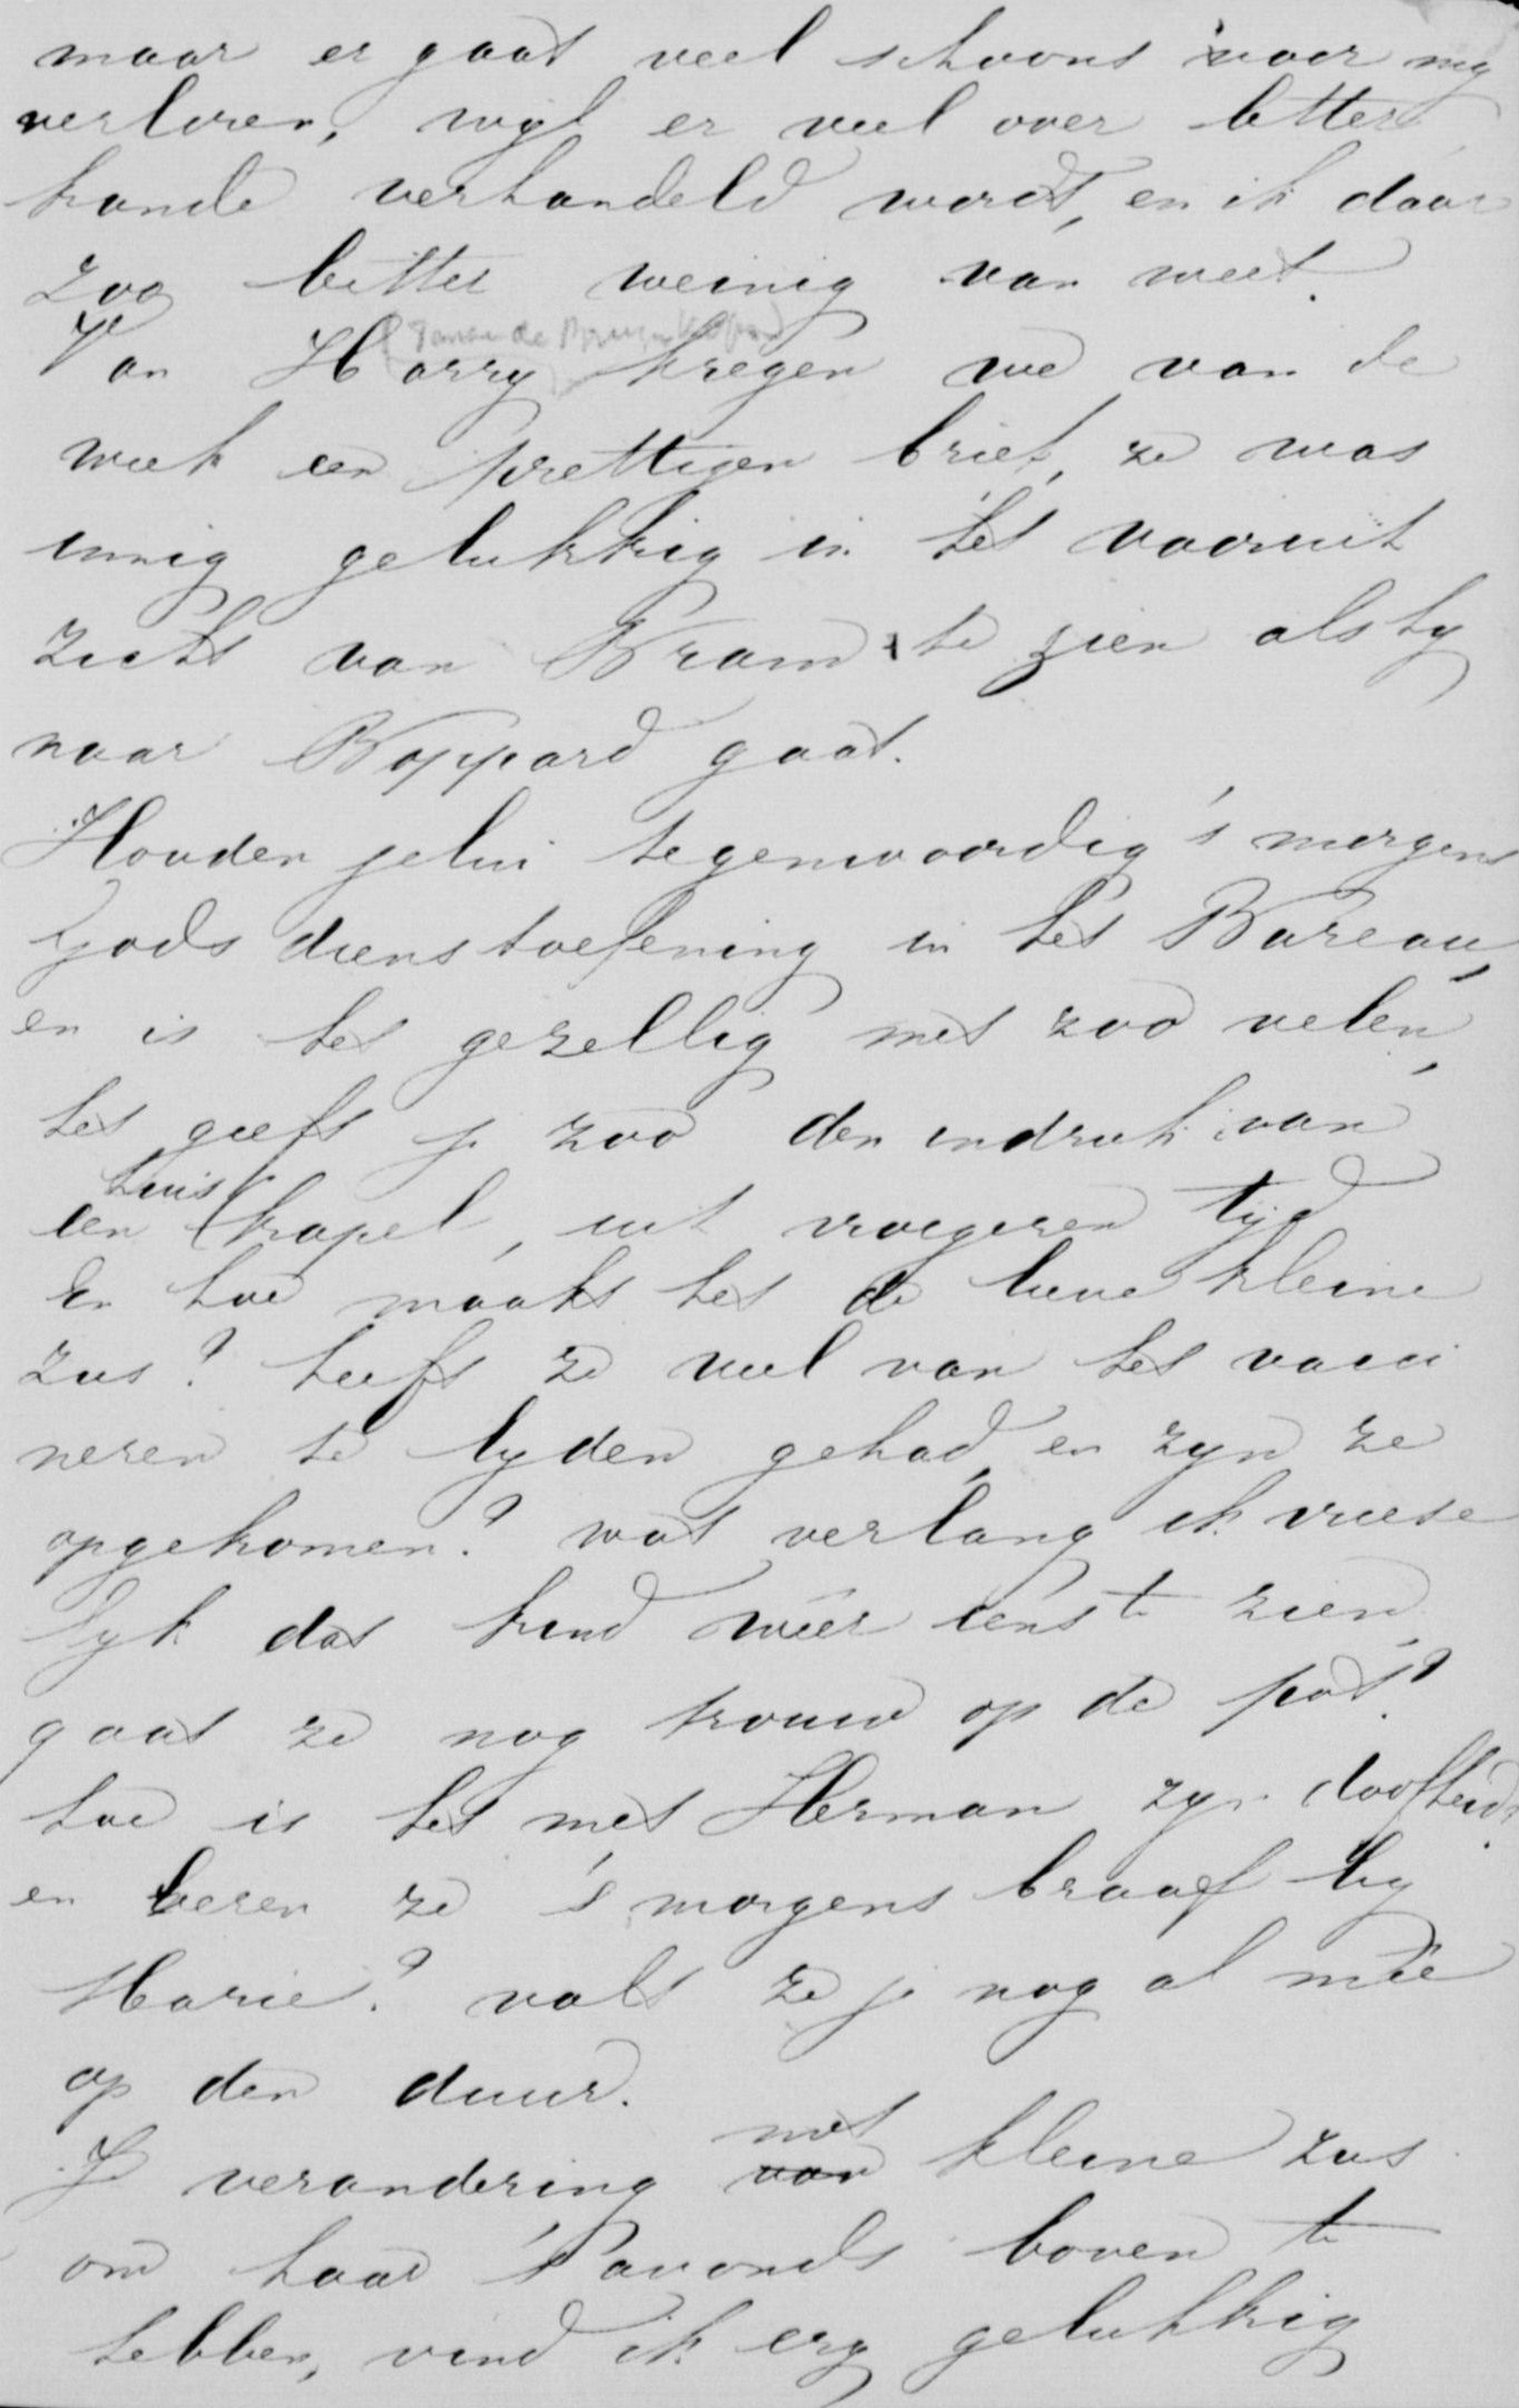 maar er gaat veel schoons voor my
verloren, wyl er veel over letter
kunde verhandeld wordt, en ik daar
zoo bitter weinig van weet.
Van Harry kregen we van de
week een prettigen brief, ze was
innig gelukkig in het vooruit
zicht van Bram te zien als hy
naar Boppard gaat.
Houden jelui tegenwoordig 's morgens
Godsdienstoefening in het Bureau,
en is het gezellig met zoo velen,
het geeft je zoo den indruk van
een huis kapel, uit vroegeren tijd
En hoe maakt het de lieve kleine
zus? heeft ze veel van het vacci
neren te lyden gehad, en zyn ze
opgekomen? wat verlang ik vreese
lyk dat kind wéér eens te zien,
gaat ze nog trouw op de pot?
hoe is het met Herman zyn doofheid,
en leren ze 's morgens braaf by
Marie? valt ze je nog al meê
op den duur.
Je verandering met kleine zus
om haar 's avonds boven te
hebben, vind ik erg gelukkig